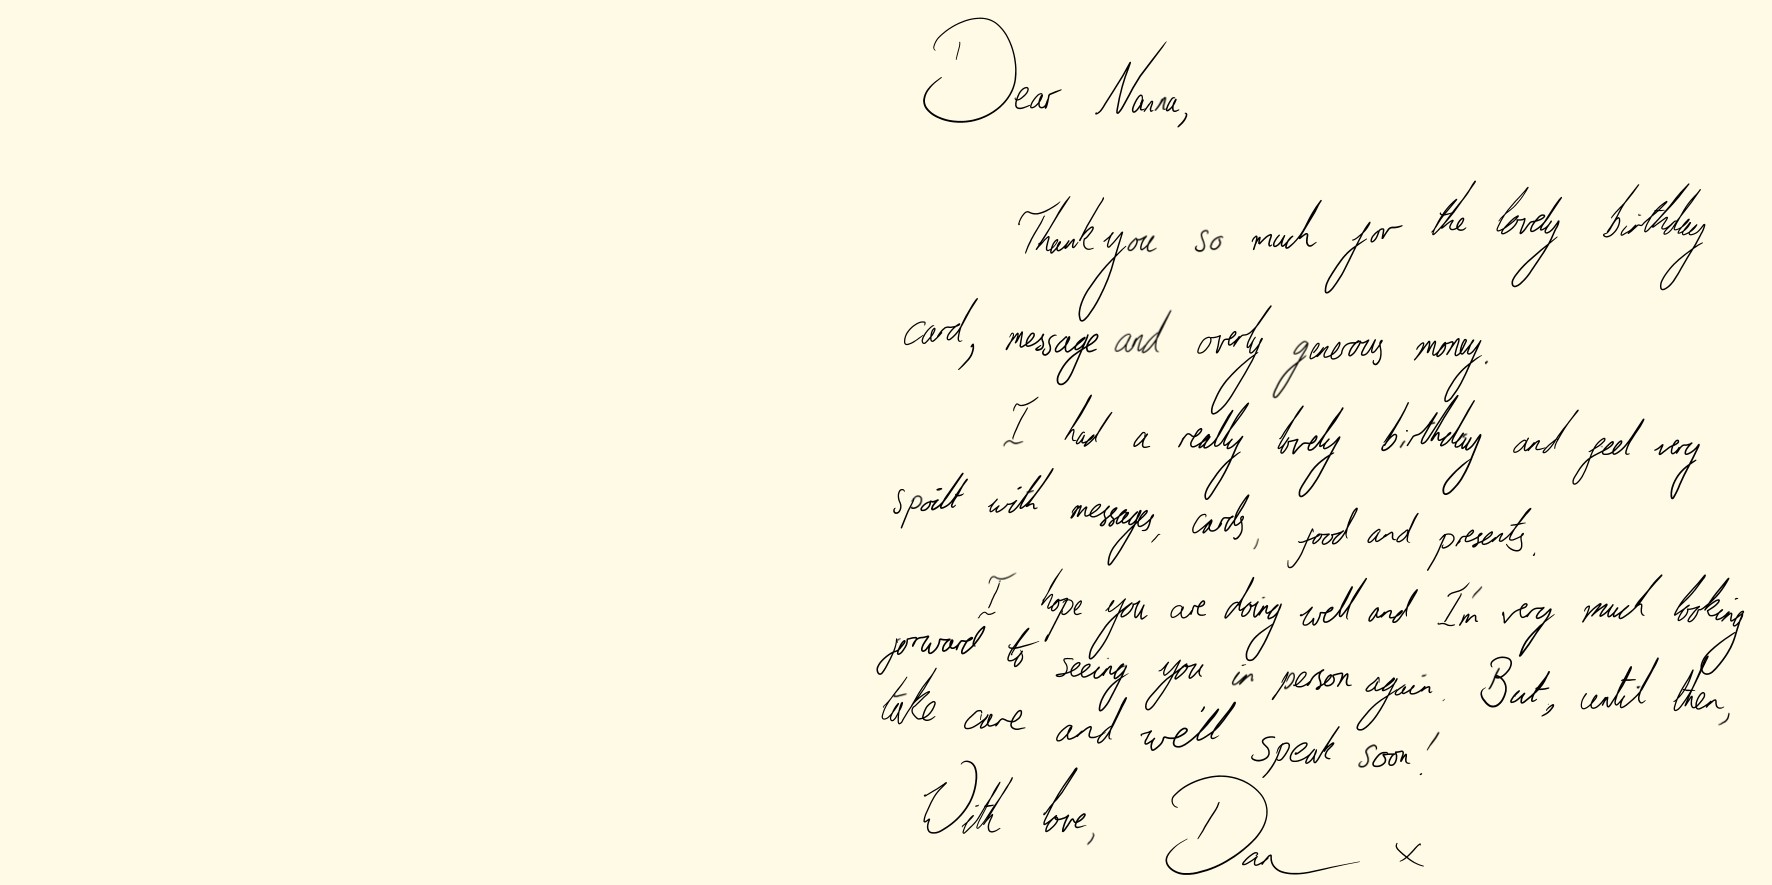 Dear Nanna,
Thank you so much for the lovely birthday
card, message and overly generous money.
I had a really lovely birthday and feel very
spoilt with messages, cards, food and presents.
I hope you are doing well and I'm very much looking
forward to seeing you in person again. But, until then,
take care and we'll speak soon!
With love, Dan x